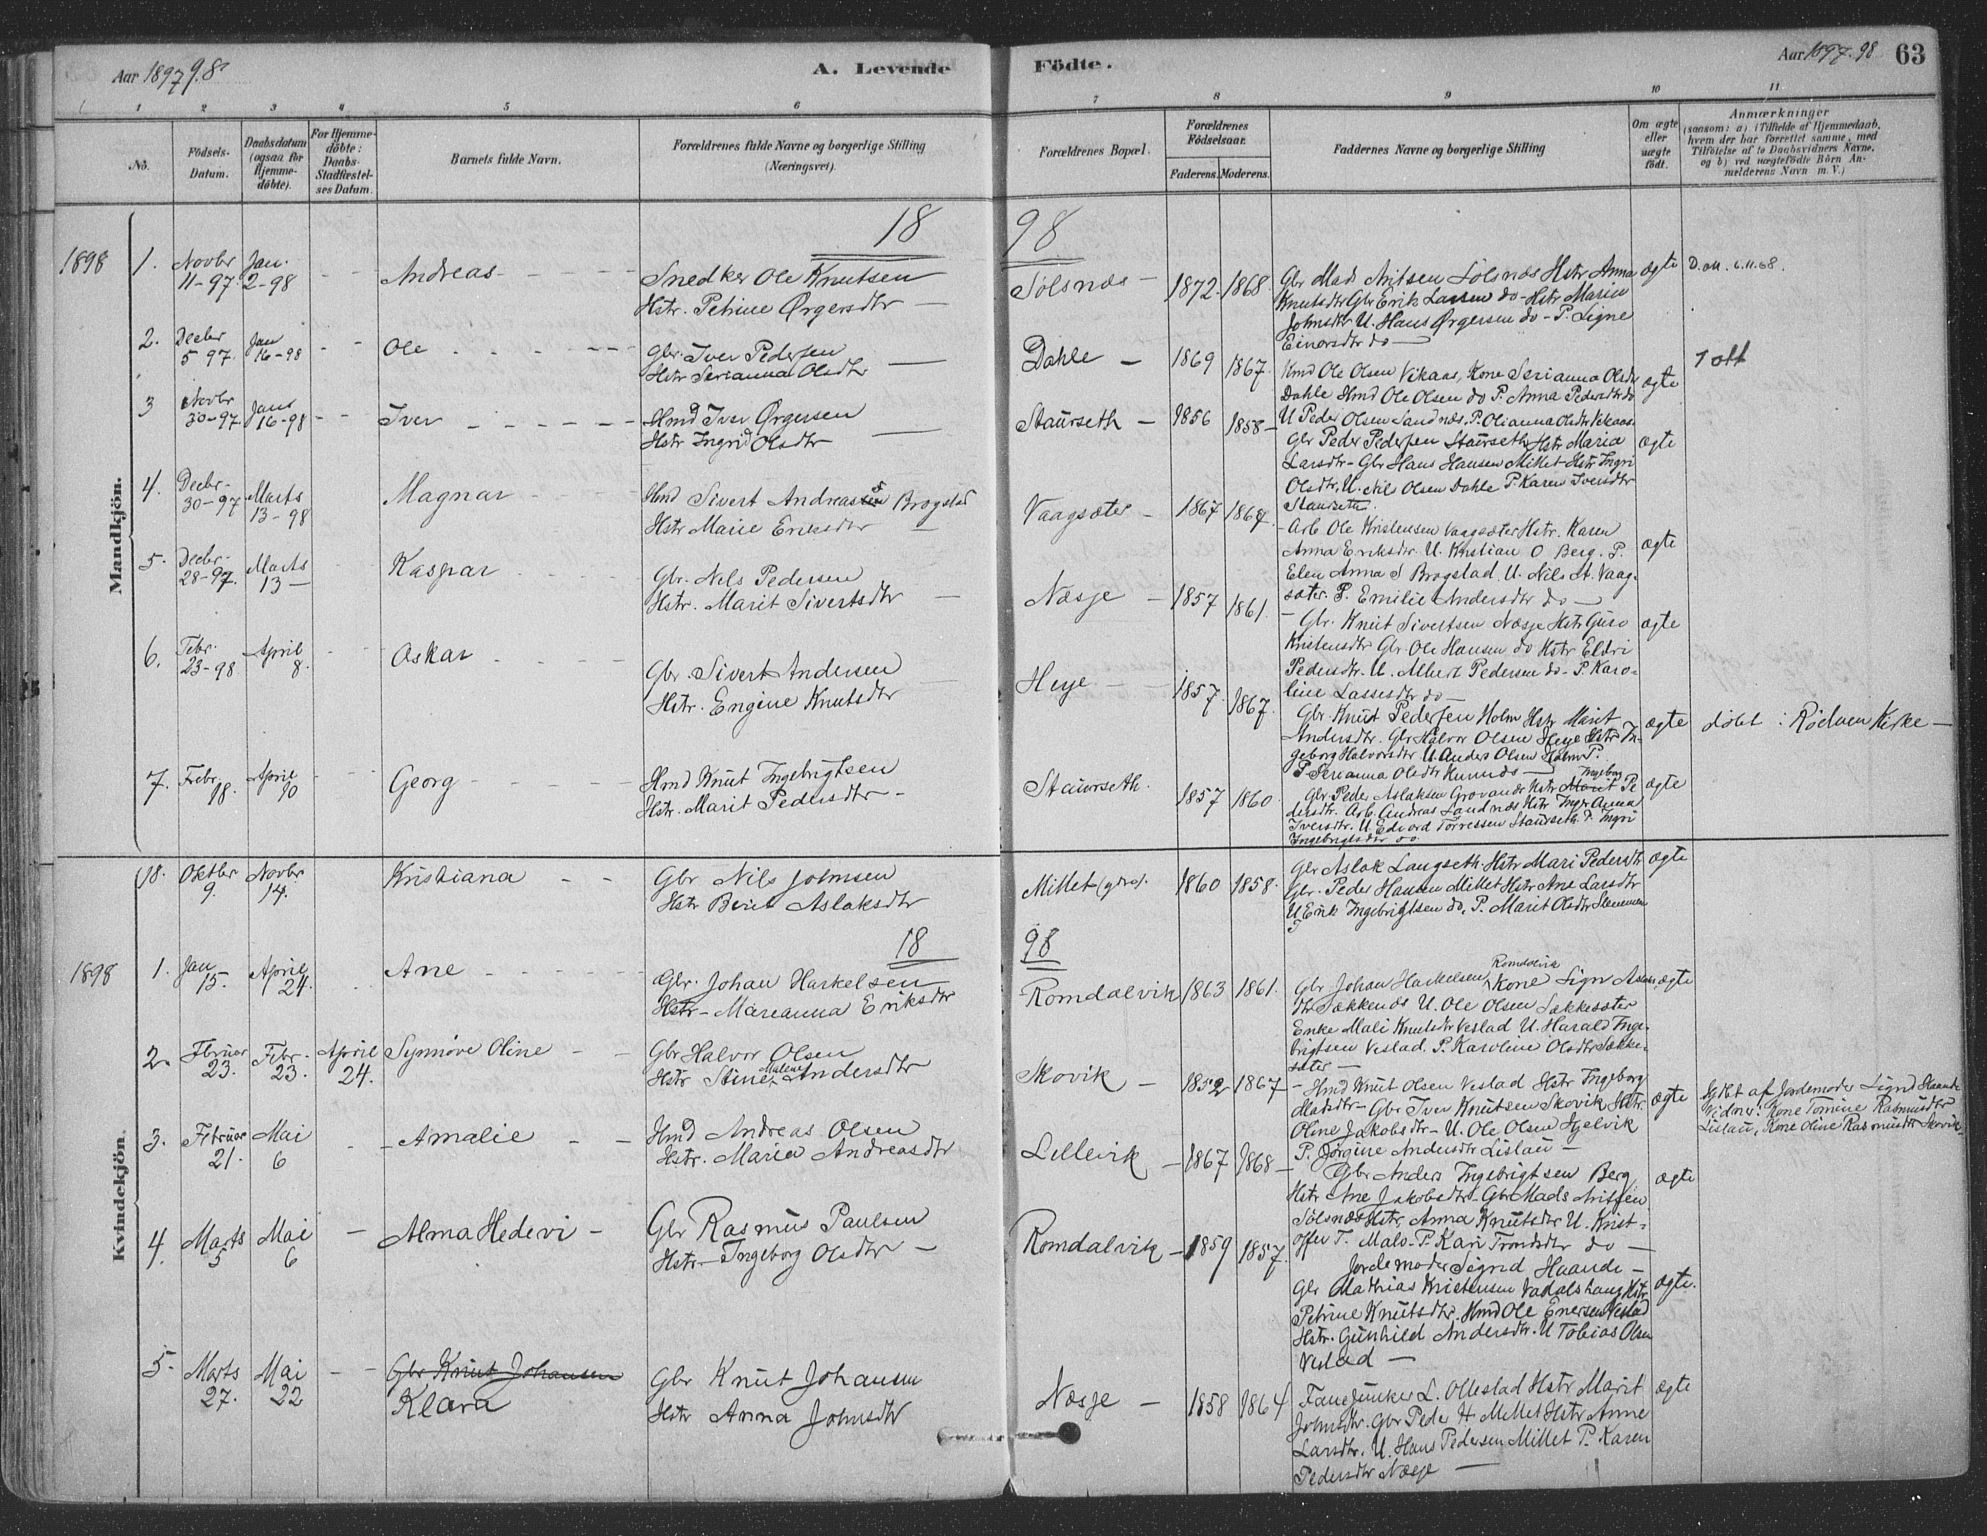 Aar 1897 98
A. Levende
Födte.
Aar 1897-98
63
1 2 3 4 5 6 7 8 9 10 11
No.
Födsels-Datum.
Daabsdatum (ogsaa for Hjemme-döbte).
For Hjemme-döbte: Daabs-Stadfæstel-ses Datum.
Barnets fulde Navn.
Forældrenes fulde Navne og borgerlige Stilling (Næringsvei).
Forældrenes Bopæl.
Forældrenes Födselsaar.
Faderens. Moderens.
Faddernes Navne og borgerlige Stilling
Om ægte eller uægte födt.
Anmærkninger
(saasom: a) i Tilfælde af Hjemmedaab,
hvem der har forrettet samme, med
Tilföielse af to Daabsvidners Navne,
og b) ved uægtefödte Börn An-
melderens Navn m. V.)
Mandkjön.
18 98
1898 1. Novbr 11-97 Jan. 2-98 Andreas
Snedker Ole Knutsen
Hstr. Petrine Ørgersdtr
Sølsnæs 1872 1868
Gbr Mads Sølsnæs Hstr Anna
Knutsdtr Gbr Erik Larsen do Hstr Maria
Johnsdtr U. Hans Ørgersen do P. Signe
Einarsdtr do
ægte
2. Decbr 5-97 Jan 16-98 Ole
Gbr. Iver Pedersen
Hstr Serianna Olsdtr
Dahle 1869 1867
Kmd Ole Olsen Vikaas, Kone Serianna Olsdtr
Dahle Hmd Ole Olsen do P. Anna Pedersdtr do
U Peder Olsen Sandnæs, P. Olianna Olsdtr Vikaas
ægte
3 Novbr 30-97 Janr 16-98 Iver
Hmd Iver Ørgersen
Hstr Ingrid Olsdtr
Staurseth 1856 1858
Gbr Peder Pedersen Staurseth Hstr Maria
Larsdtr Gbr Hans Hansen Millet Hstr Ingri
Olsdtr, U. Nils Olsen Dahle P. Karen Iversdtr
Staurseth
ægte
4. Decbr 30-97 Marts 13-98 Magnar
Hmd Sivert Andreassen Brogstad
Hstr Marie Eriksdtr
Vaagsæter 1867
Arb Ole Kristensen Vaagsæter Hstr. Karen
Anna Eriksdtr. U. Kristian O Berg. P.
Elen Anna S Brogstad U. Nils St. Vaag-
sæter. P. Emilie Andersdtr do
ægte
5. Decbr 28-97 Marts 13 Kaspar
Gbr. Nils Pedersen
Hstr. Marit Sivertsdtr
Næsje 1857 1861
Gbr. Knut Sivertsen Næsje Hstr Guro
Kristensdtr Gbr Ole Hansen do Hstr Eldri
Pedersdtr. U. Albert Pedersen do P. Karo-
line Lassesdtr do
ægte
6. Febr. 23-98 April 8. Oskar
Gbr. Sivert Andersen
Hstr. Engine Knutsdtr
Heye 1857 1867
Gbr. Knut Pedersen Holm Hstr Marit
Andersdtr. Gbr Halvor Olsen Heye Hstr In-
geborg Halvorsdtr U. Anders Olsen Holm P.
P. Serianna Olsdtr
ægte
døbt i Rødven Kirke
7. Febr 18. April 10 Georg
Hmd Knut Ingebrigtsen
Hstr. Marit Pedersdtr
Staurseth. 1857 1860
Gbr. Peder Aslaksen Grovane Hstr Marit Ingeborg Pe
dersdtr. Arb. Andreas Sandnæs Hstr Inger Anna
Iversdtr. U. Edvard Torressen Staurseth P. Ingri
Ingebrigtsdtr do
ægte
Kvindekjön.
18. Oktbr 9. Novbr 14. Kristiana
Gbr Nils Johnsen
Hstr Berit Aslaksdtr
Millet 1860 1858.
Gbr Aslak Langseth Hstr Mari Pedersdtr
Gbr. Peder Hansen Millet Hstr Ane Larsdtr
U Erik Ingebrigtsen do, P. Marit Olsdtr
ægte
18 98
1898 1. Jan 15. April 24. Ane
Gbr. Johan Harkelsen
Hstr Marianna Eriksdtr
Romdalvik 1863 1861.
Gbr Johan Harkelsen, Romdalvik Kone Sign
U. Ole Olsen Sækkesæter
Enke Mali Knutsdtr Vestad U. Harald Inge-
brigtsen Vestad. P. Karoline Olsdtr Sække-
sæter
ægte
2. Februar 23. Febr. 23. April 24. Synnøve Oline
Gbr Halvor Olsen
Hstr Stine Malene Andersdtr
Skovik 1852 1867
Hmd Knut Olsen Vestad Hstr Ingeborg
Matsdtr Gbr Iver Knutsen Skovik Hstr.
Oline Jakobsdtr U. Ole Olsen Hjelvik
P. Jørgine Andersdtr Lislau
ægte
døbt af Jordemoder Sigrid Haande
Vidner: Kone Tomine Rasmusdtr
Lislau, Kone Oline Rasmusdtr Skovik
3. Februar 21. Mai 6 Amalie
Hmd Andreas Olsen
Hstr. Maria Andreasdtr
Lillevik 1867 1868
Gbr Anders Ingebrigtsen Berg
Hstr Ane Jakobsdtr. Gbr Mads
Sølsnæs Hstr, Anna Knutsdtr U. Krist-
offer T. Malo. P. Kari Trondsdtr do
ægte
4. Marts 5 Mai 6 Alma Hedevi
Gbr Rasmus Paulsen
Hstr Ingeborg Olsdtr
Romdalvik 1859 1857.
Jordemoder Sigrid Haande
Gbr Mathias Kristensen Vadalshaug Hstr.
Petrine Knutsdtr. Hmd Ole Enersen Vestad
Hstr. Gunhild Andersdtr. U Tobias Olsen
Vestad
ægte.
5. Marts 27. Mai 22 Gbr Knut Johansen
Klara
Gbr Knut Johansen
Hstr Anna Johnsdtr
Næsje 1858 1864
Fanejunker L. Ollestad Hstr Marit
Johnsdtr. Gbr Peder H Millet Hstr Anne
Larsdtr. U. Hans Pedersen Millet P. Karen
Pedersdtr Næsje
ægte